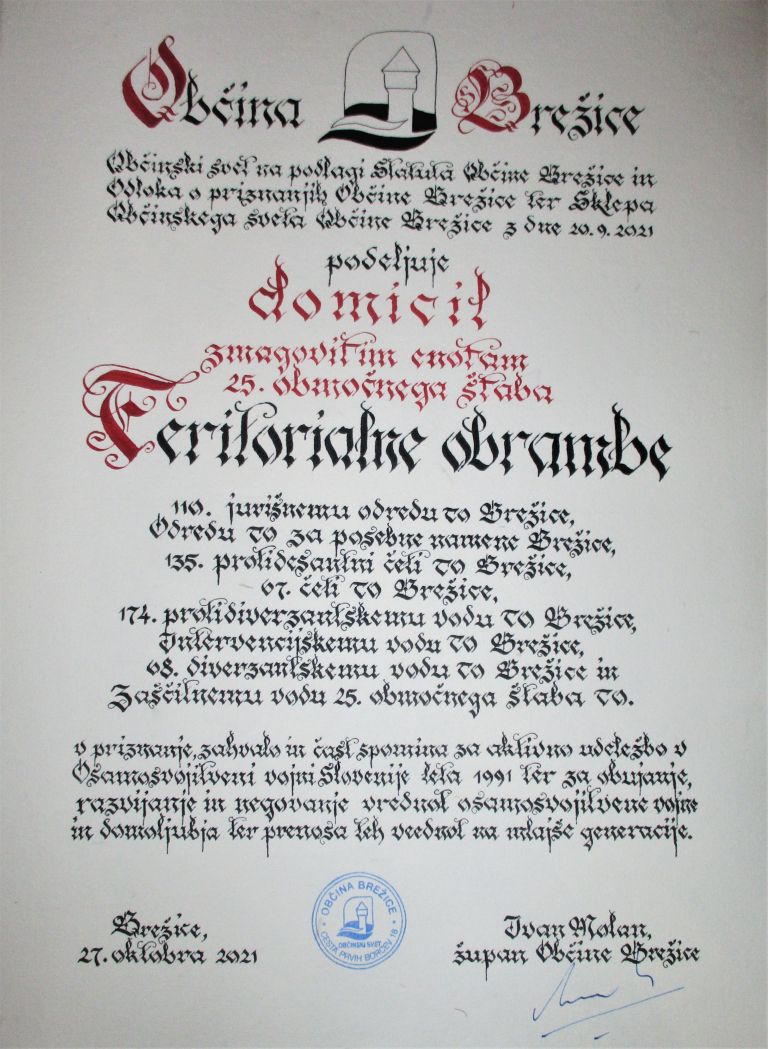 Občina Brežice
Občinski svet na podlagi Statuta Občine Brežice in
Odloka o priznanjih Občine Brežice ter Sklepa
Občinskega sveta Občine Brežice z dne 20. 9. 2021
podeljuje
domicil
zmagovitim enotam
25. območnega štaba
Teritorialne obrambe
110. jurišnemu odredu TO Brežice,
Odredu TO za posebne namene Brežice,
135. protidesantni četi TO Brežice,
67. četi TO Brežice,
174. protidiverzantskemu vodu TO Brežice,
Intervencijskemu vodu TO Brežice,
68. diverzantskemu vodu TO Brežice in
Zaščitnemu vodu 25. območnega štaba TO.
v priznanje, zahvalo in čast spomina za aktivno udeležbo v
Osamosvojitveni vojni Slovenije leta 1991 ter za obujanje,
razvijanje in negovanje vrednot osamosvojitvene vojne
in domoljubja ter prenosa teh veednot na mlajše generacije.
OBČINA BREŽICE
OBČINSKI SVET
CESTA PRVIH BORCEV 18
Brežice,
27. oktobra 2021
Ivan Molan,
župan Občine Brežice